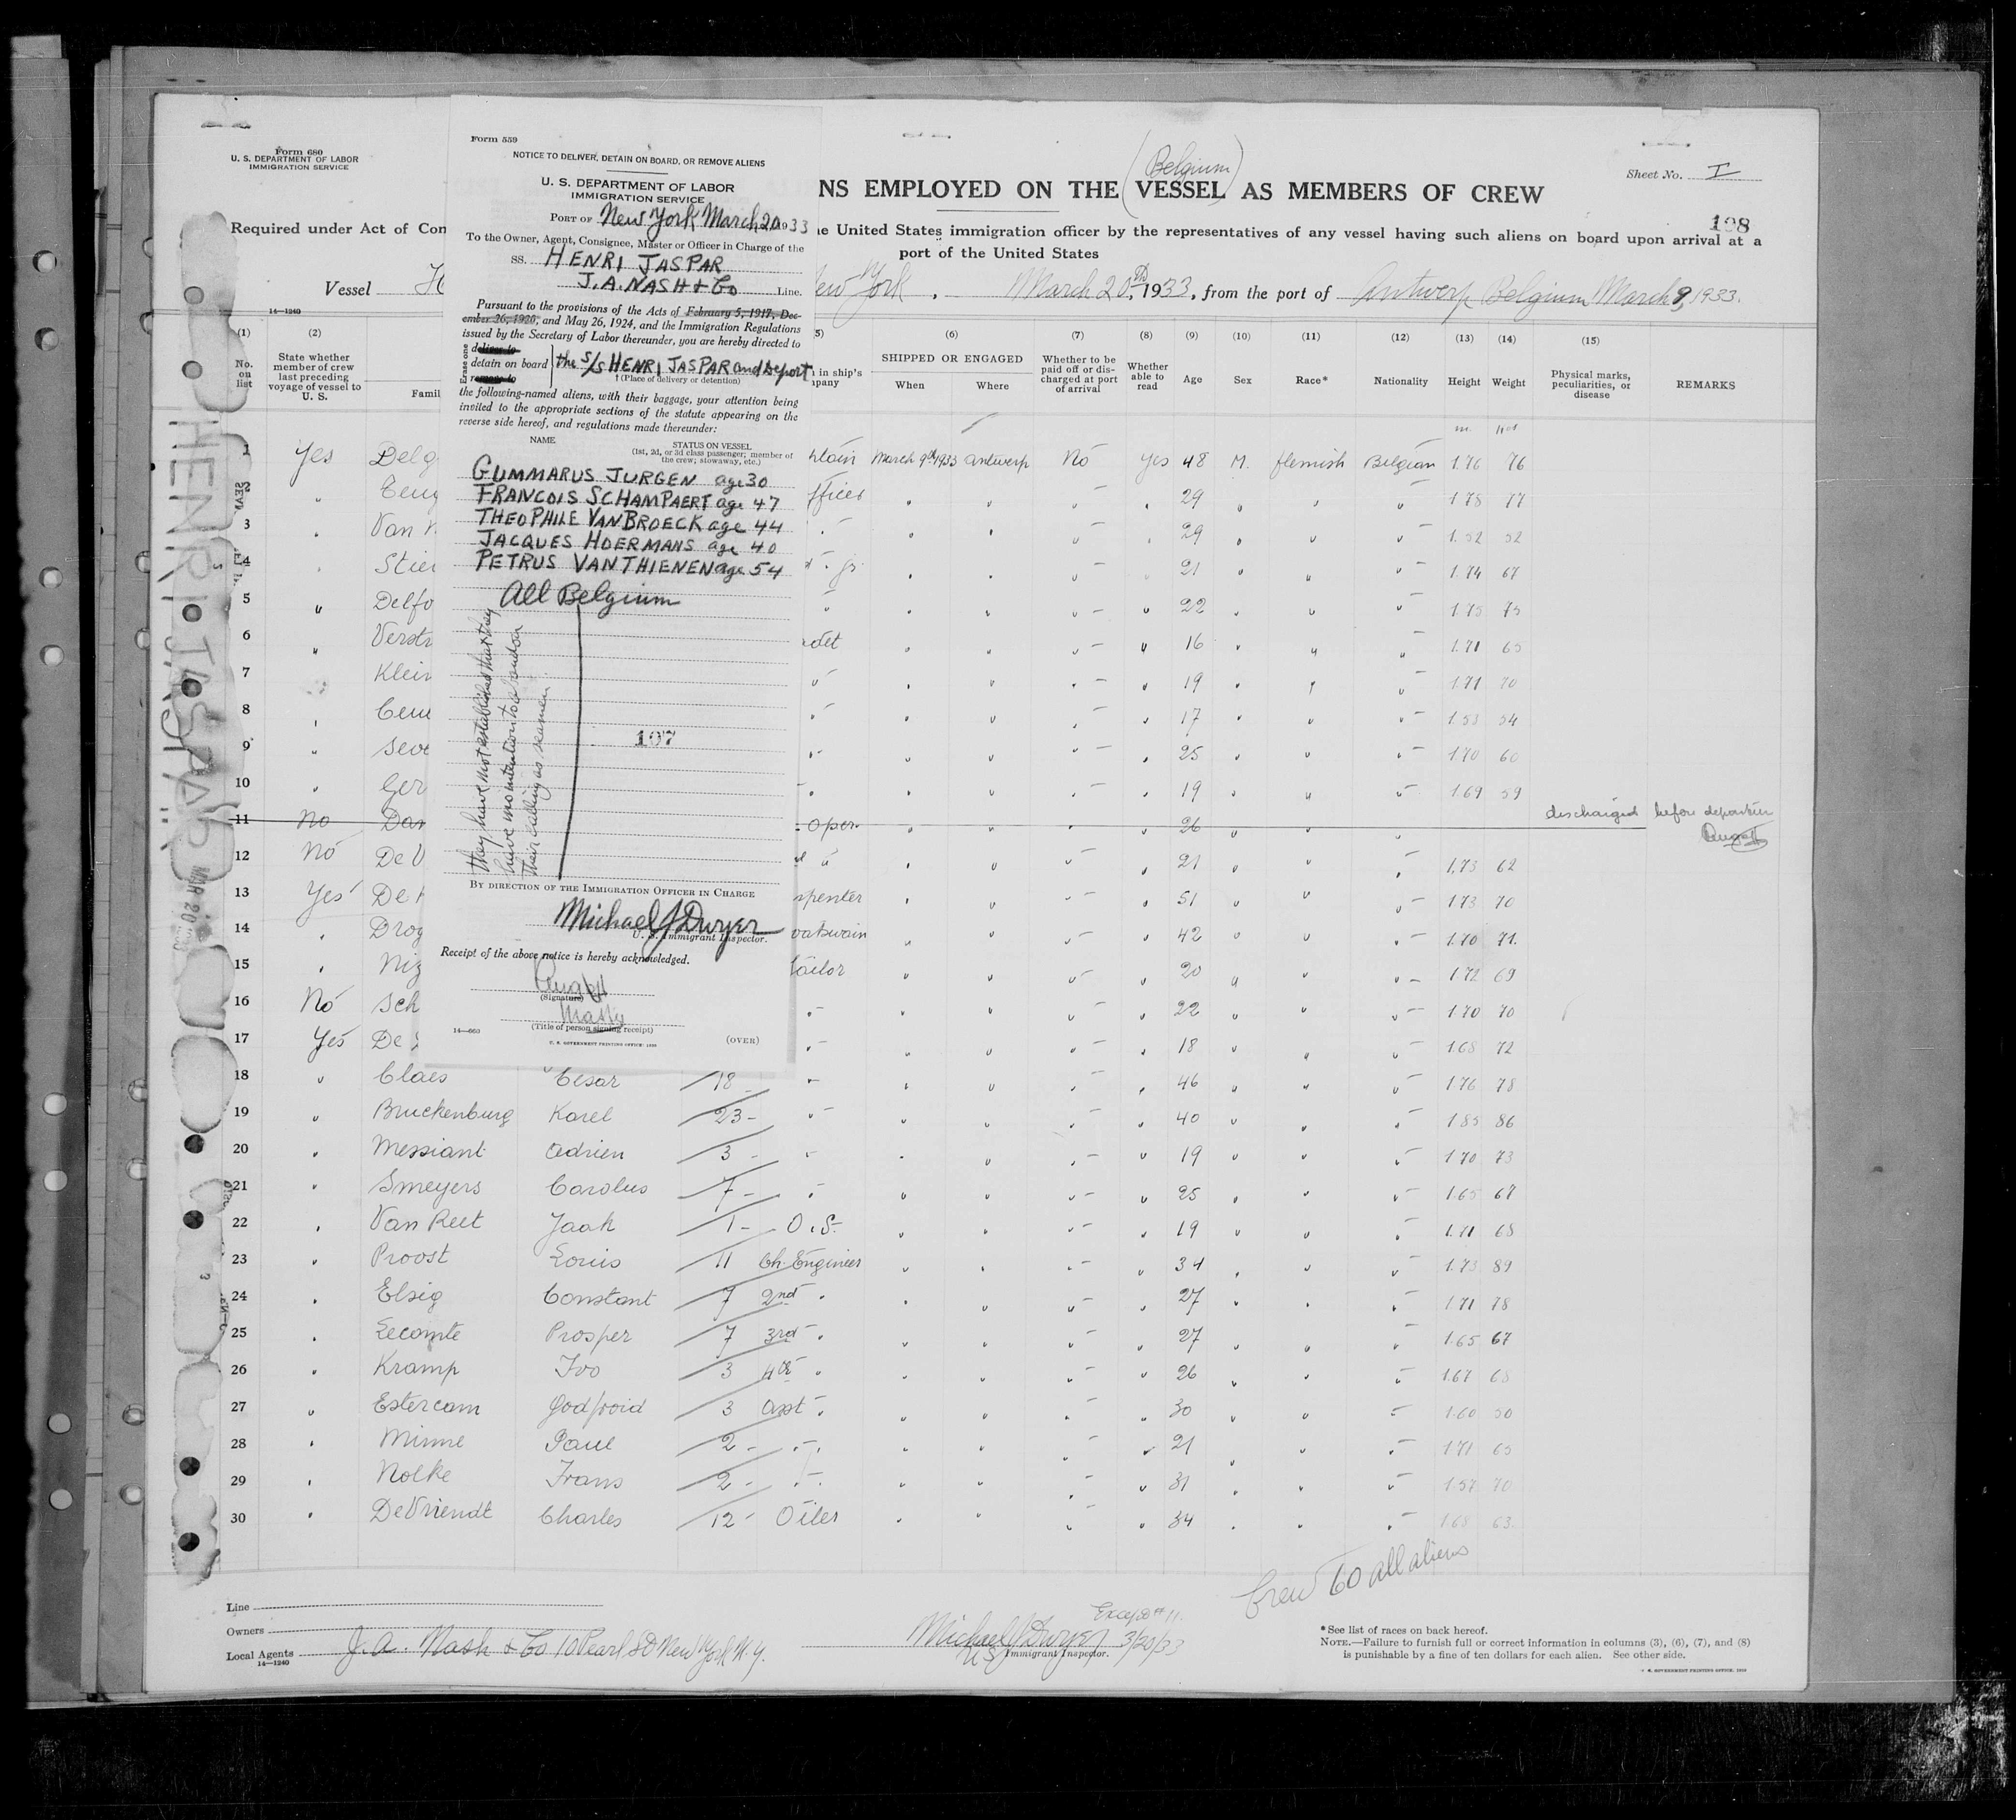 Form 680
U. S. DEPARTMENT OF LABOR
IMMIGRATION SERVICE
(Belgium)
NS EMPLOYED ON THE VESSEL AS MEMBERS OF CREW
Sheet No. I
108
Required under Act of Con
e United States immigration officer by the representatives of any vessel having such aliens on board upon arrival at a
port of the United States
Vessel H
New York, March 20th, 1933, from the port of Antwerp Belgium March 9, 1933.
14—1240
Form 559
NOTICE TO DELIVER, DETAIN ON BOARD, OR REMOVE ALIENS
U. S. DEPARTMENT OF LABOR
IMMIGRATION SERVICE
PORT OF New York March 20 1933
To the Owner, Agent, Consignee, Master or Officer in Charge of the
SS. HENRI JASPAR
J.A. NASH & Co Line.
Pursuant to the provisions of the Acts of February 5, 1917, Dec-
ember 26, 1920, and May 26, 1924, and the Immigration Regulations
issued by the Secretary of Labor thereunder, you are hereby directed to
Erase one
deliver to
detain on board the S/S HENRI JASPAR and Deport
remove to
(Place of delivery or detention)
the following-named aliens, with their baggage, your attention being
invited to the appropriate sections of the statute appearing on the
reverse side hereof, and regulations made thereunder:
NAME STATUS ON VESSEL
(1st, 2d, or 3d class passenger; member of
the crew; stowaway, etc.)
GUMMARUS JURGEN age 30
FRANCOIS SCHAMPAERT age 47
THEOPHILE VAN BROECK age 44
JACQUES HOERMANS age 40
PETRUS VAN THIENEN age 54
All Belgium
they have not established that they
have no intention to abandon
their calling as seamen
107
BY DIRECTION OF THE IMMIGRATION OFFICER IN CHARGE
Michael J Dwyer
U. S. Immigrant Inspector.
Receipt of the above notice is hereby acknowledged.
(Signature)
Master
(Title of person signing receipt)
14—660
U. S. GOVERNMENT PRINTING OFFICE: 1930
(OVER)
HENRI JASPAR MAR 20 1933
(1) (2) 5) (6) (7) (8) (9) (10) (11) (12) (13) (14) (15)
No. on list
State whether member of crew last preceding voyage of vessel to U. S.
Famil
in ship's
pany
SHIPPED OR ENGAGED
When Where
Whether to be paid off or discharged at port of arrival
Whether able to read
Age Sex Race* Nationality Height Weight
Physical marks, peculiarities, or disease
REMARKS
1 Yes Delg tain March 9th 1933 Antwerp No Yes 48 M. flemish Belgian 1.76 76
2 " fficer " " " " 29 " " " 1.78 77
3 " Van " " " " 29 " " " 1.52 52
4 " Stier " " " " 21 " " " 1.74 67
5 " Delfo " " " " " 22 " " " 1.75 73
6 " Verstr det " " " " 16 " " " 1.71 65
7 Klein " " " " " 19 " " " 1.71 70
8 " " " " " " 17 " " " 1.53 54
9 " Seve " " " " " 25 " " " 1.70 60
10 " Ger " " " " " 19 " " " 1.69 59
11 No Dan oper. " " " " 26 " " " discharged before departure
12 No De V " " " " " 21 " " " 1.73 62
13 Yes De penter " " " " 51 " " 1.73 70
14 " Drog oatswain " " " " 42 " " " 1.70 71.
15 " Niz Sailor " " " " 20 " " " 1.72 69
16 No Sch " " " " " 22 " " " 1.70 70
17 Yes De " " " " " 18 " " " 1.68 72
18 " Claes Cesar 18 - " " " " " 46 " " " 1.76 78
19 " Bruckenburg Karel 23 - " " " " " 40 " " " 1.85 86
20 " Messiant Adrien 3 - " " " " " 19 " " " 1.70 73
21 " Smeyers Carolus 7 - " " " " " 25 " " " 1.65 67
22 " Van Reet Jaak 1 - O.S. " " " " 19 " " " 1.71 68
23 " Proost Louis 11 Ch. Engineer " " " " 34 " " " 1.73 89
24 " Elsig Constant 7 2nd " " " " " 27 " " " 1.71 78
25 " Lecomte Prosper 7 3rd " " " " " 27 " " " 1.65 67
26 " Kramp Ivo 3 4th " " " " " 26 " " " 1.67 68
27 " Estercam Godfroid 3 Asst. " " " " " 30 " " " 1.60 50
28 " Minne Paul 2 - " " " " " 21 " " " 1.71 65
29 " Nolke Frans 2 - " " " " " 31 " " " 1.57 70
30 " DeVriendt Charles 12 - Oiler " " " " 34 " " " 1.68 63.
Crew 60 all aliens
Line
Owners
Local Agents J. A. Nash & Co 10 Pearl St New York N.Y.
14—1240
Except #11.
Michael J Dwyer 3/20/33
US Immigrant Inspector.
*See list of races on back hereof.
NOTE.—Failure to furnish full or correct information in columns (3), (6), (7), and (8)
is punishable by a fine of ten dollars for each alien. See other side.
U. S. GOVERNMENT PRINTING OFFICE: 1930